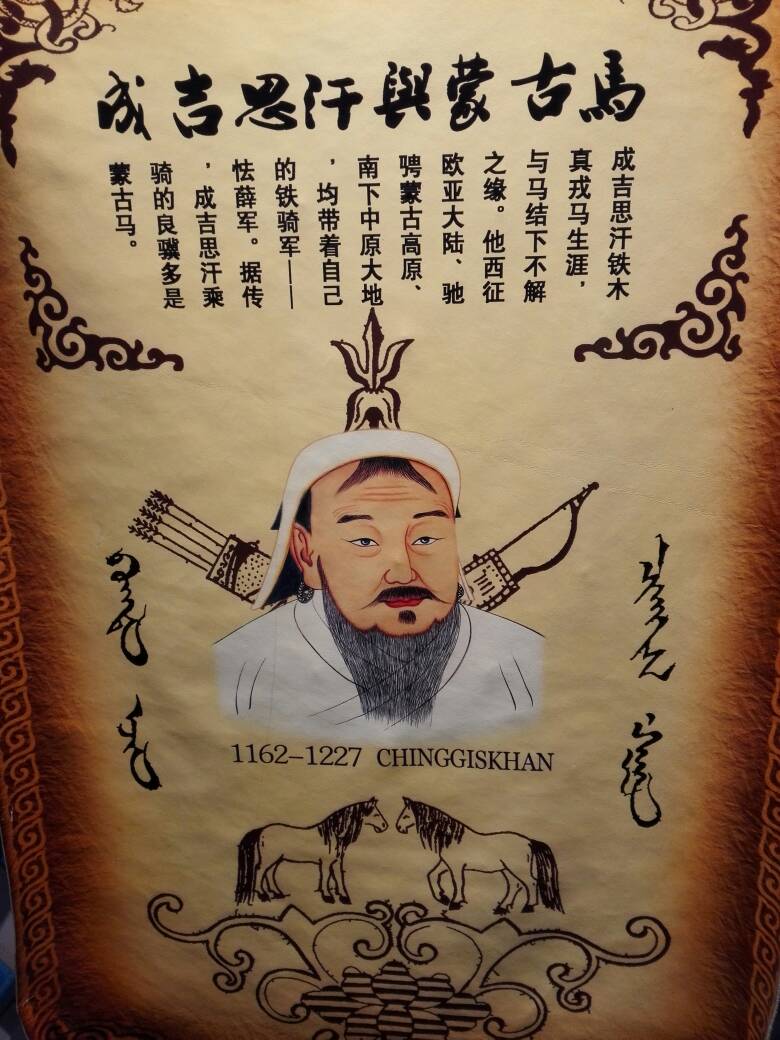 成吉思汗與蒙古馬
成吉思汗铁木
真戎马生涯，
与马结下不解
之缘。他西征
欧亚大陆、驰
骋蒙古高原、
南下中原大地
，均带着自己
的铁骑军——
怯薛军。据传
，成吉思汗乘
骑的良骥多是
蒙古马。
1162–1227 CHINGGISKHAN